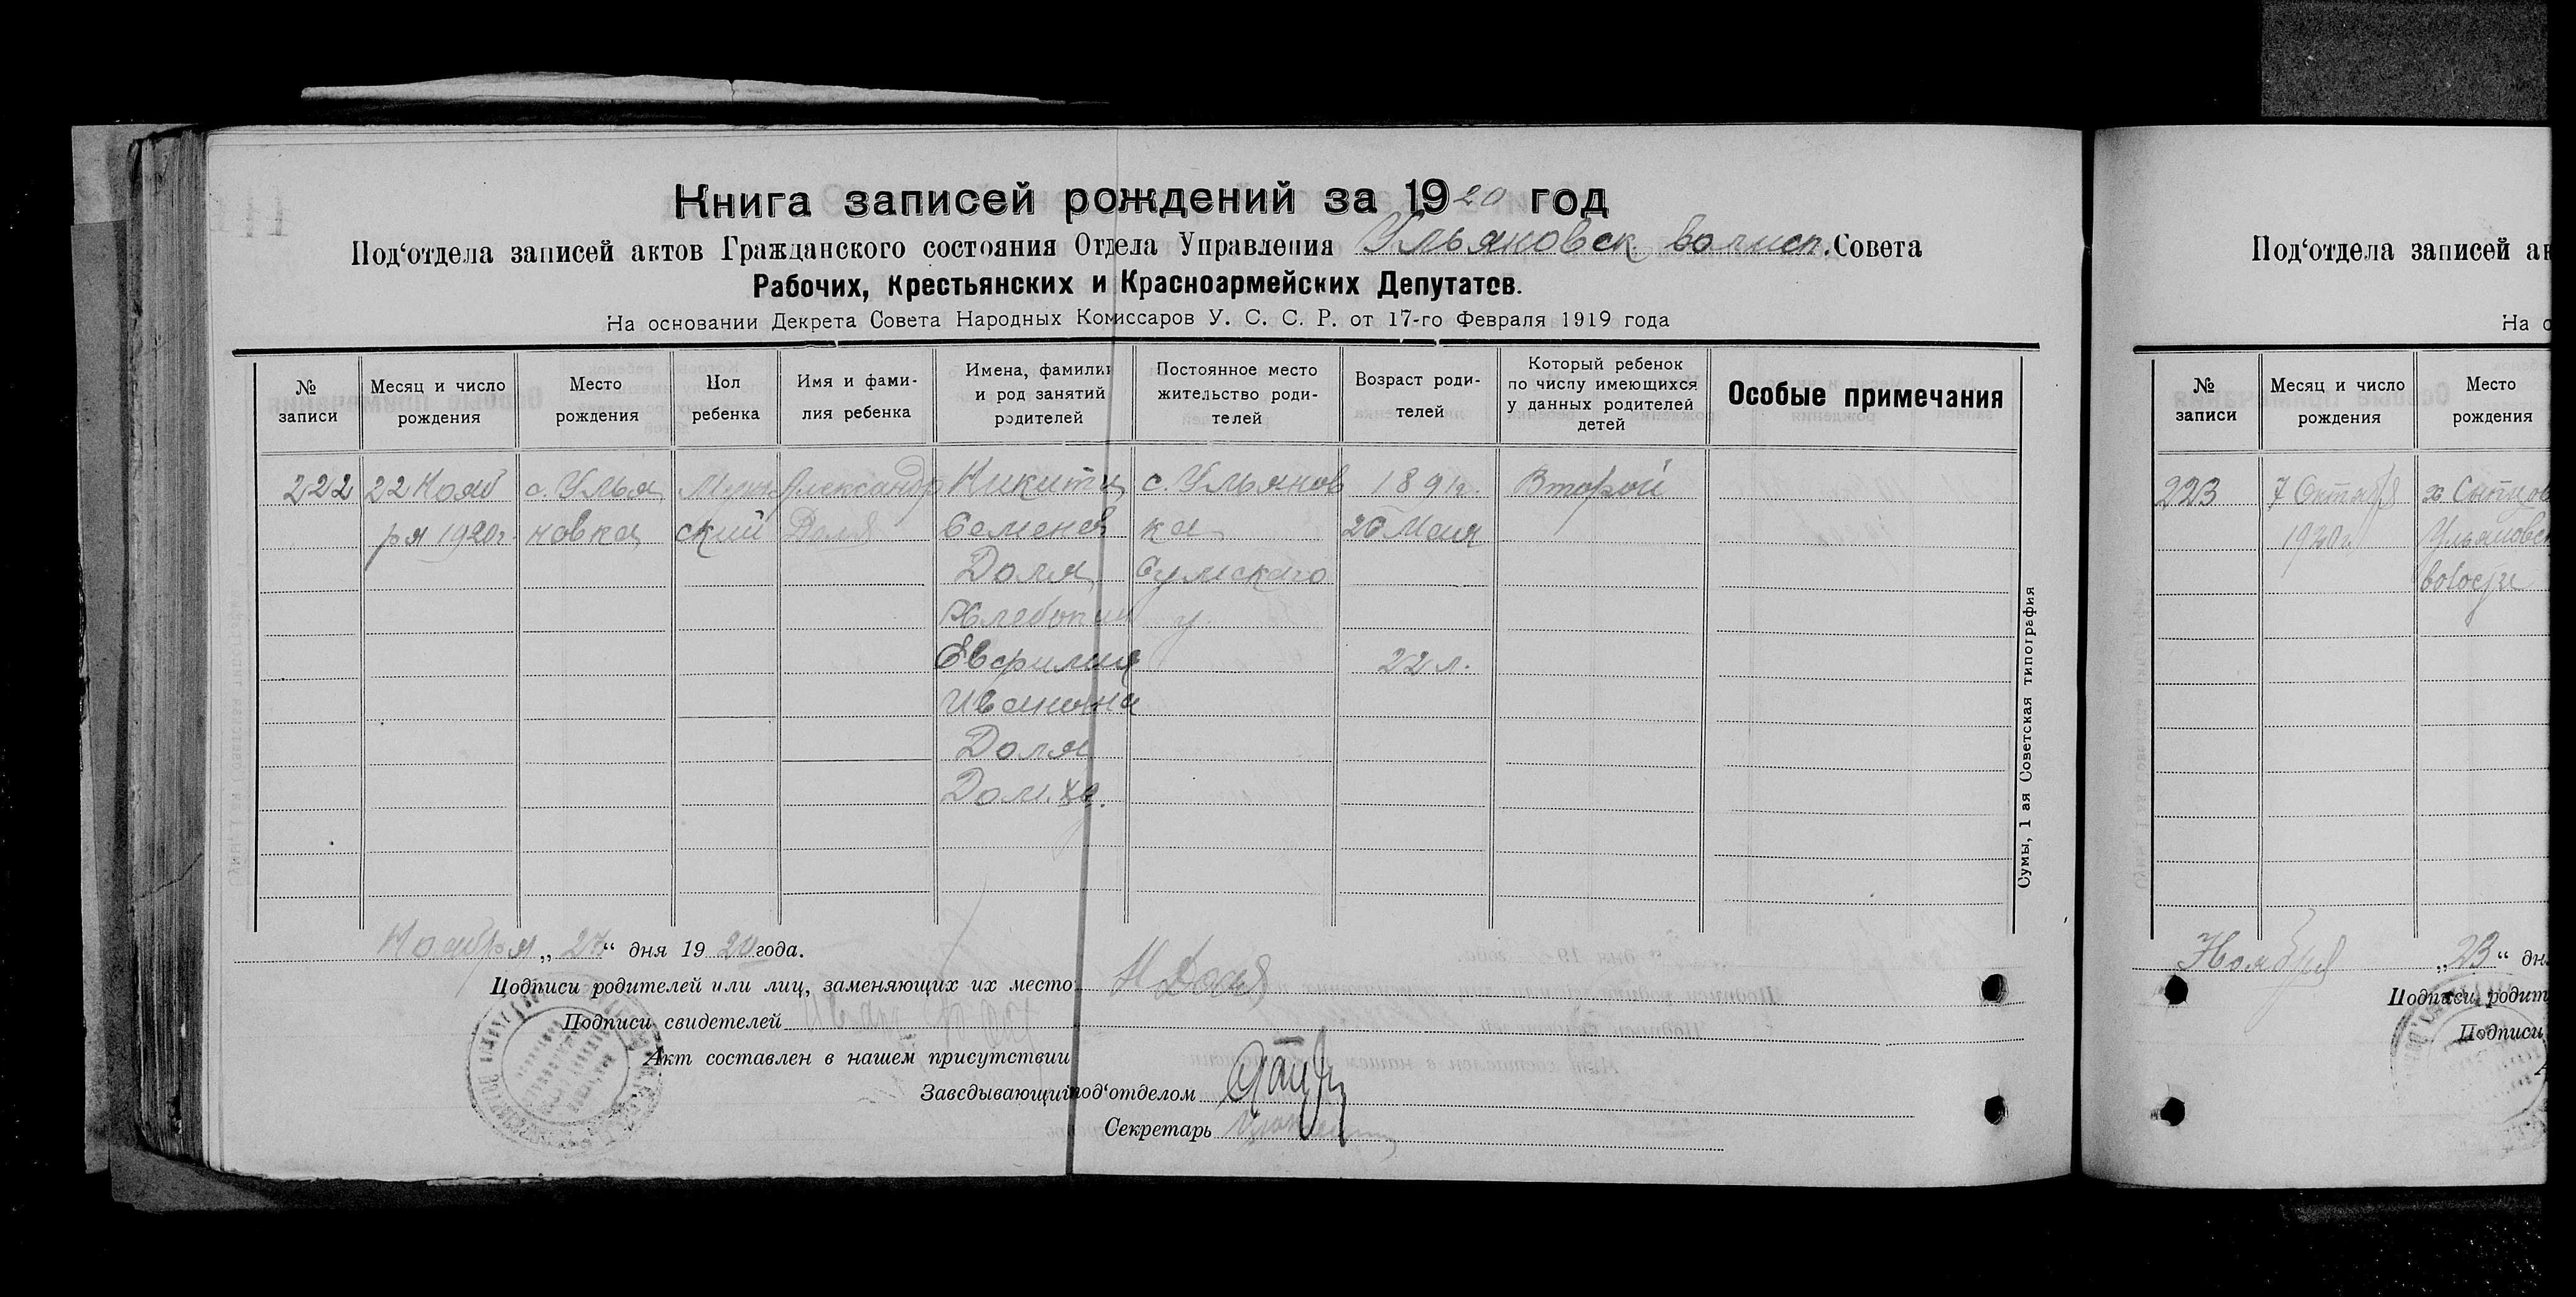 Книга записей рождений за 1920 год
Под'отдела записей актов Гражданского состояния Отдела Управления Ульяновск волисп. Совета
Рабочих, Крестьянских и Красноармейских Депутатов.
На основании Декрета Совета Народных Комиссаров У. С. С. Р. от 17-го Февраля 1919 года
№ записи
Месяц и число рождения
Место рождения
Пол ребенка
Имя и фамилия ребенка
Имена, фамилии и род занятий родителей
Постоянное место жительство родителей
Возраст родителей
Который ребенок по числу имеющихся у данных родителей детей
Особые примечания
222 22 Нояб с. Улья Муж Александр Никита с. Ульянов 1891г. Второй
ря 1920г. новка ский Доля Семенов ка 26 Мая
Доля Сумскаго
Хлебопаш у.
Евфимия 22 л.
Ивановна
Доля
Дом. хо.
Сумы, 1 ая Советская типография
Ноября „27“ дня 1920 года.
Подписи родителей или лиц, заменяющих их место Н Доля
Подписи свидетелей Иван
Акт составлен в нашем присутствии
Заведывающий под'отделом
Секретарь
Под'отдела записей ак
На о
№ записи
Месяц и число рождения
Место рождения
223 7 Октября х
1920г. Ульяновск
волости
Ноября „23“ дн
Подписи родит
Подписи